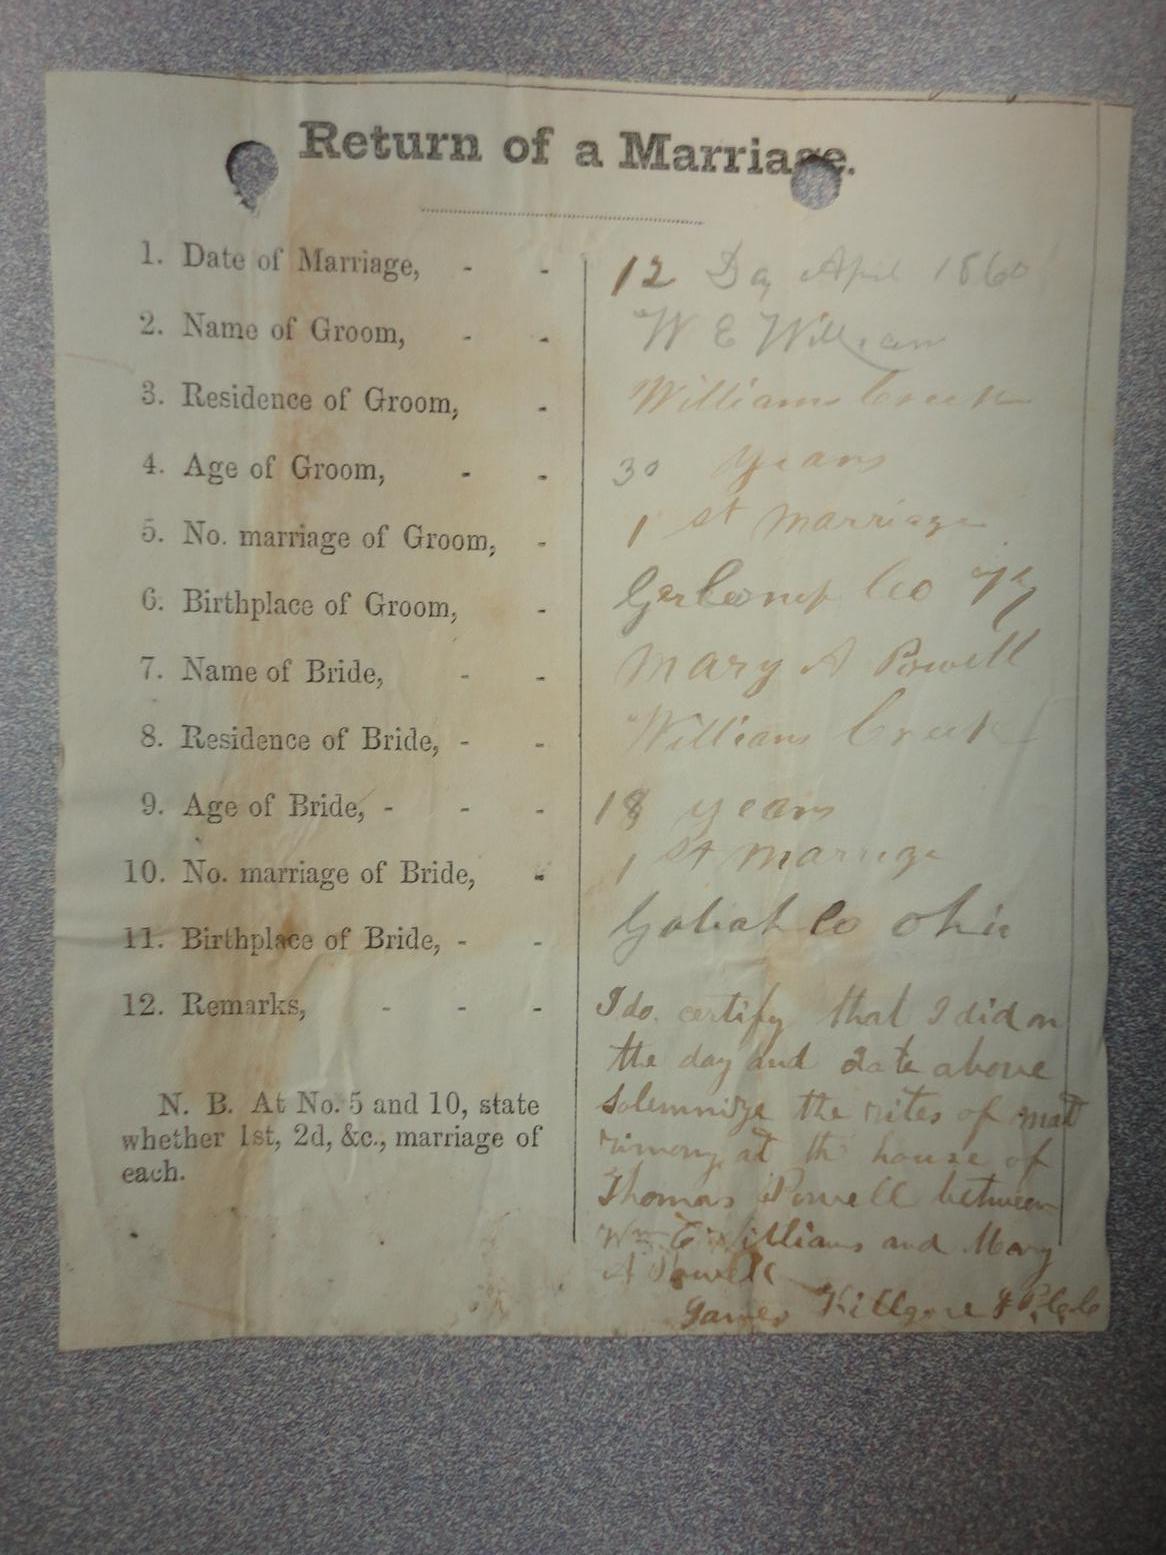 Return of a Marriage.
1. Date of Marriage, - - 12 Day April 1860
2. Name of Groom, - - W E William
3. Residence of Groom, - Williams Creek
4. Age of Groom, - - 30 years
5. No. marriage of Groom, - 1 st marriage
6. Birthplace of Groom, - Co Ky
7. Name of Bride, - - Mary A Powell
8. Residence of Bride, - - Williams Creek
9. Age of Bride, - - - 18 years
10. No. marriage of Bride, - 1 st marrige
11. Birthplace of Bride, - - Co Ohio
12. Remarks, - - - I do certify that I did on
the day and date above
N. B. At No. 5 and 10, state
whether 1st, 2d, &c., marriage of
each.
solemnize the rites of mat
rimony at th house of
Thomas Powell between
Wm E Williams and Mary
A Powell
James Killgore